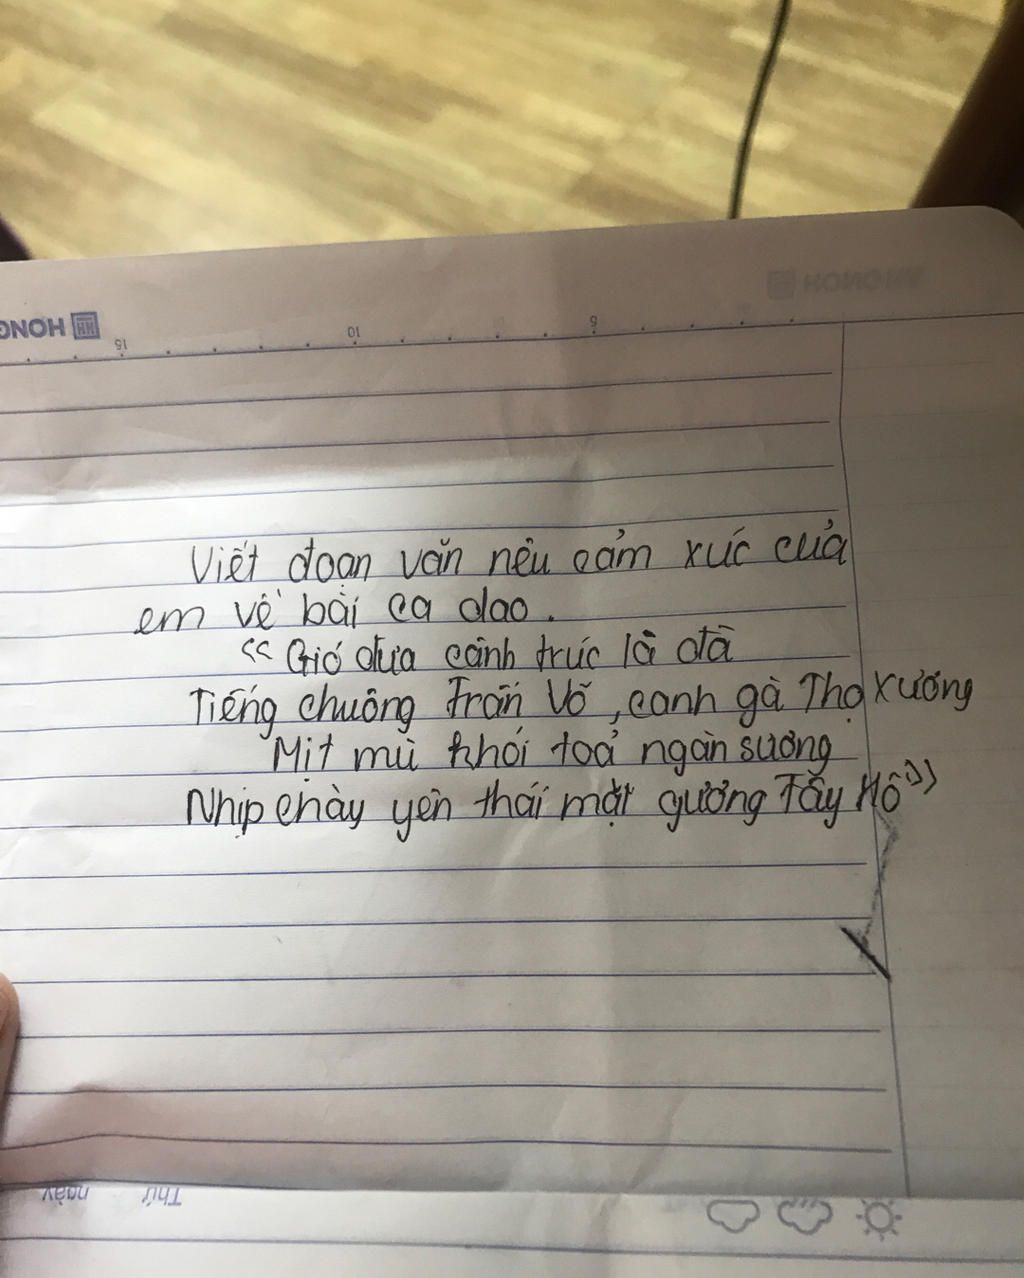 HONG
15 10 5
Viết đoạn văn nêu cảm xúc của
em về bài ca dao.
<< Gió đưa cành trúc là đà
Tiếng chuông Trấn Võ, canh gà Thọ Xương
Mịt mù khói toả ngàn sương
Nhịp chày yên thái mặt gương Tây Hồ >>
Thứ ngày